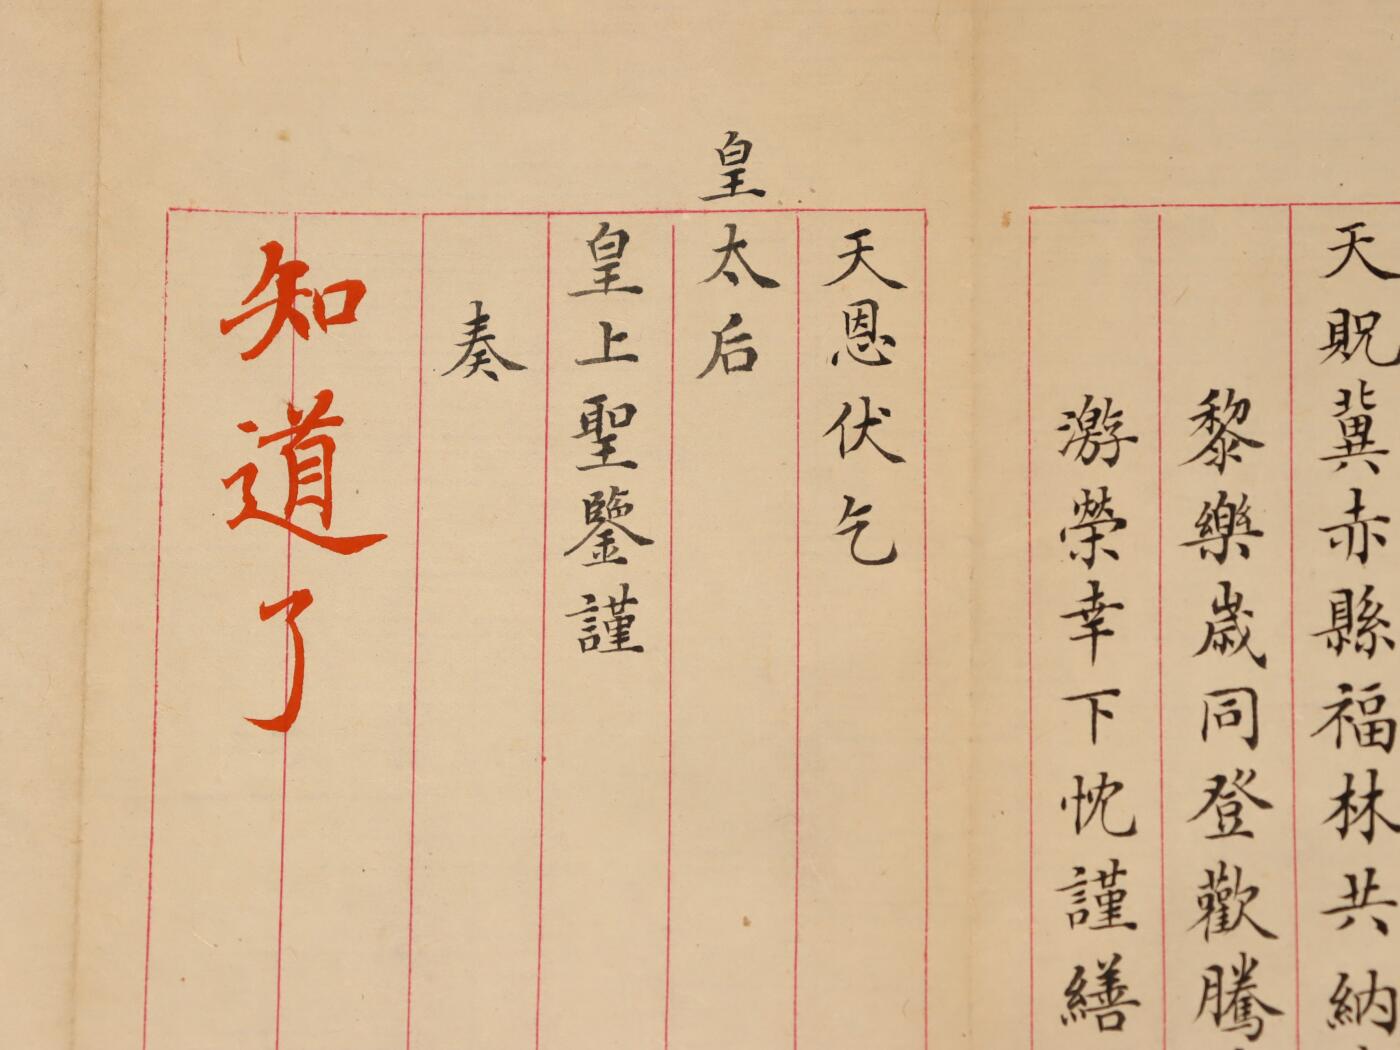 天貺冀赤縣福林共納
黎樂歲同登歡騰
游榮幸下忱謹繕
天恩伏乞
皇太后
皇上聖鑒謹
奏
知道了